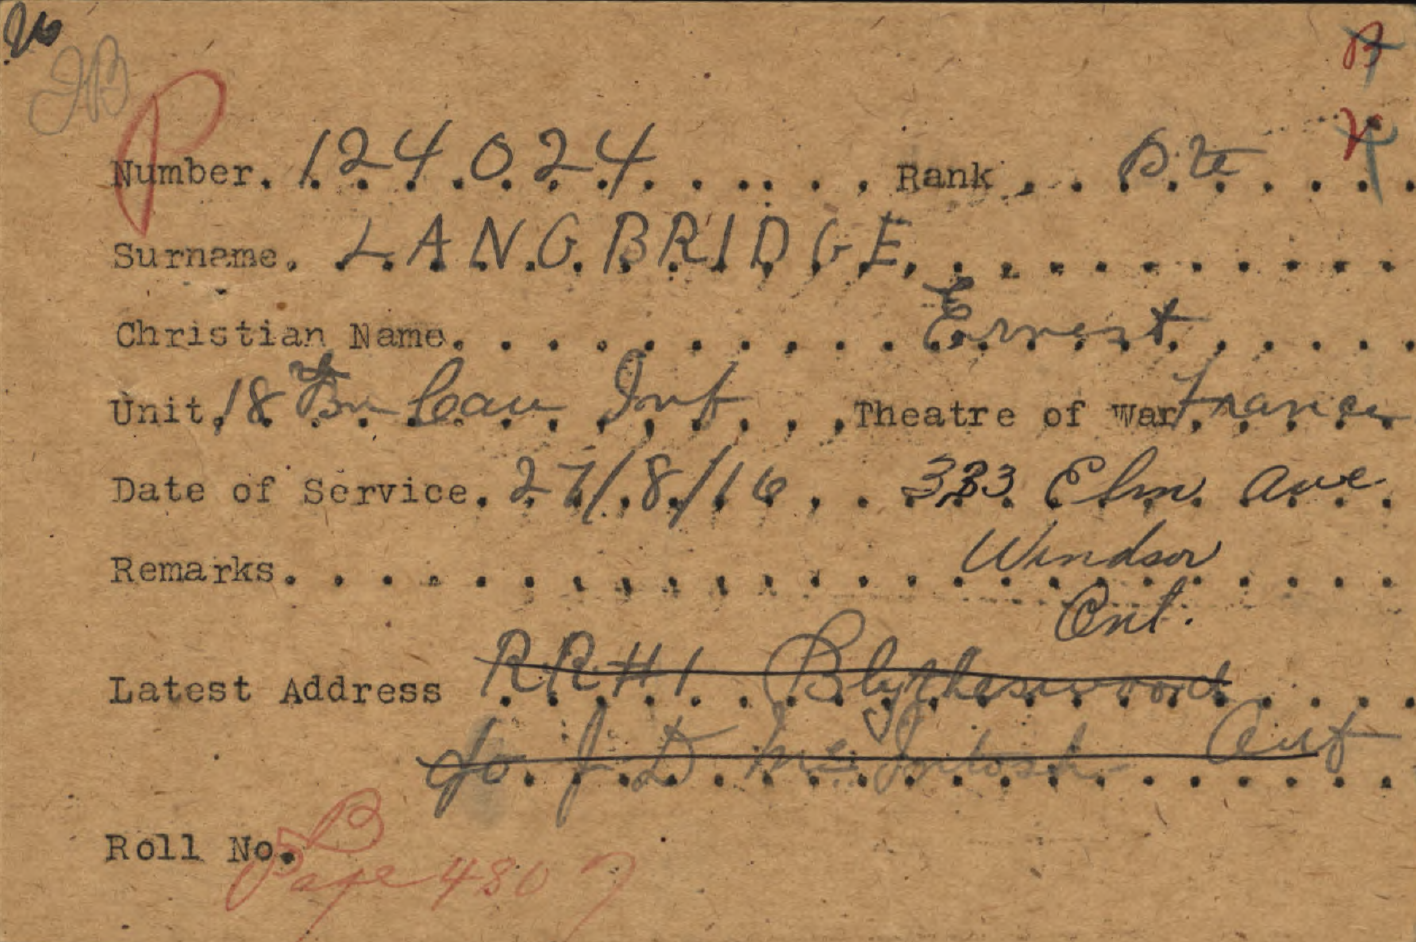 26
JB
B
P
Number. 124024 Rank Pte
Surname. LANGBRIDGE
Christian Name. Ernest
Unit. 18th Bn Can Inf Theatre of War France
Date of Service. 27/8/16 333 Elm Ave
Remarks. Windsor
Ont.
Latest Address RR#1 Blytheswood
c/o J D McIntosh Ont
B
Roll No.
Page 4807